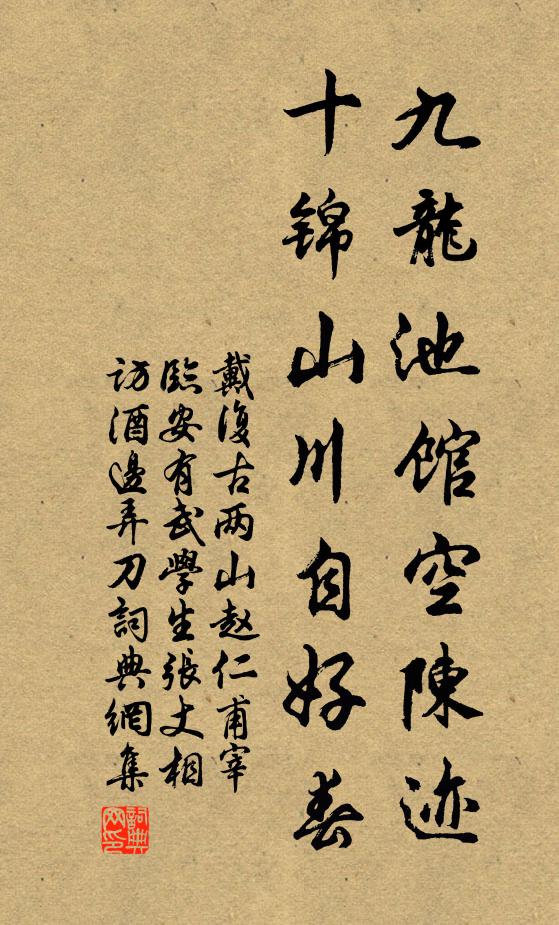 九龍池館空陳迹
十锦山川自好春
戴復古两山赵仁甫宰
臨安有武學生張丈相
訪酒邊弄刀詞典網集
詞典
网印